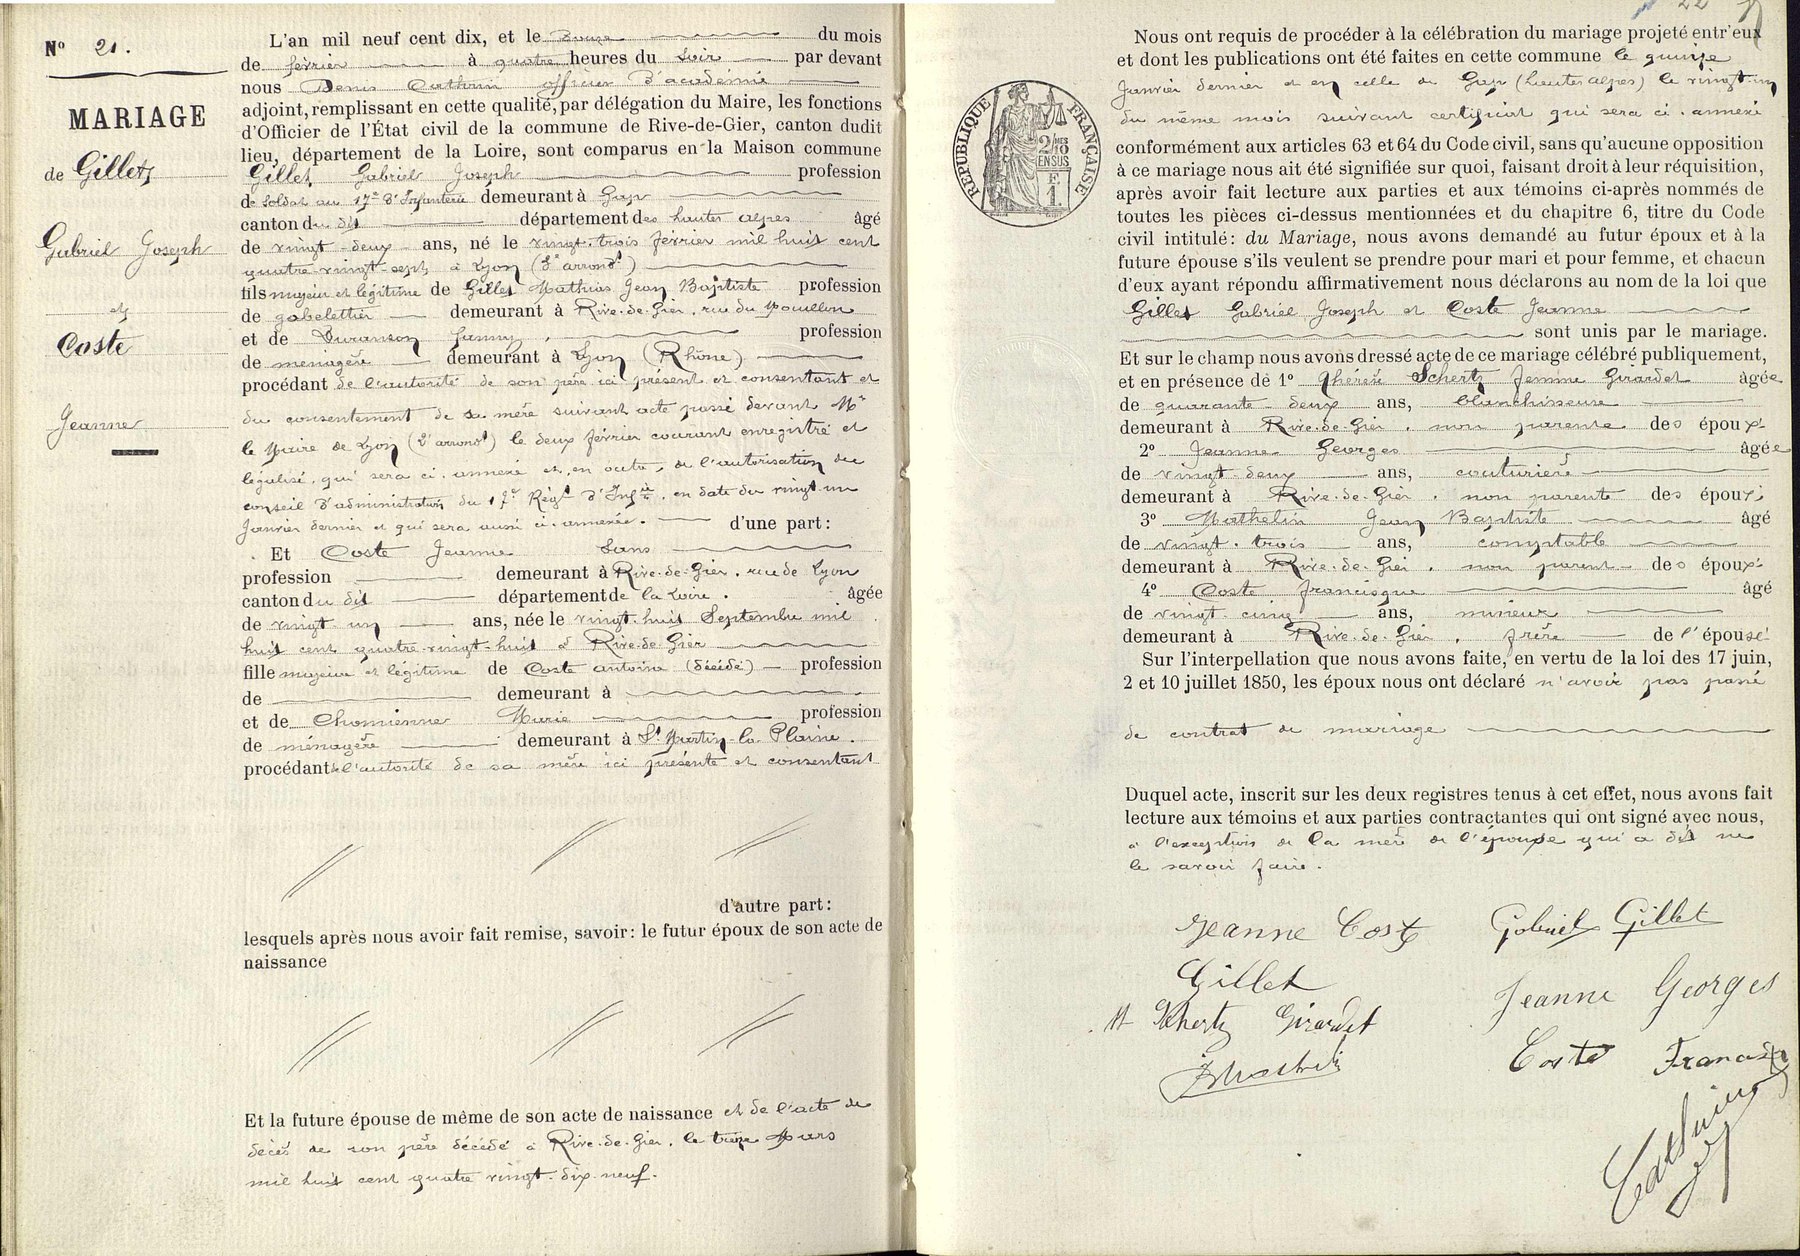 N° 21.
MARIAGE
de Gillet
Gabriel Joseph
et
Coste
Jeanne
L'an mil neuf cent dix, et le Douze du mois
de février à quatre heures du soir par devant
nous Denis Cathrin officier d'académie
adjoint, remplissant en cette qualité, par délégation du Maire, les fonctions
d'Officier de l'État civil de la commune de Rive-de-Gier, canton dudit
lieu, département de la Loire, sont comparus en la Maison commune
Gillet Gabriel Joseph profession
de soldat au 17e d'Infanterie demeurant à Gap
canton du dit département des hautes alpes âgé
de vingt-deux ans, né le vingt-trois février mil huit cent
quatre-vingt-sept à Lyon (3e arrondt)
fils majeur et légitime de Gillet Mathias Jean Baptiste profession
de gobelettier demeurant à Rive-de-Gier, rue du Mouillon
et de Duranson Fanny, profession
de ménagère demeurant à Lyon (Rhône)
procédant de l'autorité de son père ici présent et consentant et
du consentement de sa mère suivant acte passé devant Mr
le Maire de Lyon (2e arrondt) le deux février courant enregistré et
légalisé, qui sera ci-annexé et, en outre, de l'autorisation du
conseil d'administration du 17e Régt d'Infie, en date du vingt-un
Janvier dernier et qui sera aussi ci-annexée. d'une part :
Et Coste Jeanne Sans
profession demeurant à Rive-de-Gier, rue de Lyon
canton du dit département de la Loire. âgée
de vingt un ans, née le vingt-huit Septembre mil
huit cent quatre-vingt-huit à Rive-de-Gier
fille majeure et légitime de Coste antoine (décédé) profession
de demeurant à
et de Chomienne Marie profession
de ménagère demeurant à St Martin-la-Plaine.
procédant de l'autorité de sa mère ici présente et consentant
d'autre part :
lesquels après nous avoir fait remise, savoir : le futur époux de son acte de
naissance
Et la future épouse de même de son acte de naissance et de l'acte de
décès de son père décédé à Rive-de-Gier, le treize Mars
mil huit cent quatre vingt-dix-neuf.
22
Nous ont requis de procéder à la célébration du mariage projeté entr'eux
et dont les publications ont été faites en cette commune le quinze
Janvier dernier et en celle de Gap (hautes alpes) le vingt-un
du même mois suivant certificat qui sera ci-annexé
RÉPUBLIQUE FRANÇAISE
2/10 EN SUS
F
1.
conformément aux articles 63 et 64 du Code civil, sans qu'aucune opposition
à ce mariage nous ait été signifiée sur quoi, faisant droit à leur réquisition,
après avoir fait lecture aux parties et aux témoins ci-après nommés de
toutes les pièces ci-dessus mentionnées et du chapitre 6, titre du Code
civil intitulé : du Mariage, nous avons demandé au futur époux et à la
future épouse s'ils veulent se prendre pour mari et pour femme, et chacun
d'eux ayant répondu affirmativement nous déclarons au nom de la loi que
Gillet Gabriel Joseph et Coste Jeanne
sont unis par le mariage.
Et sur le champ nous avons dressé acte de ce mariage célébré publiquement,
et en présence de 1° Thérèse Schertz femme Girardet âgée
de quarante-deux ans, blanchisseuse
demeurant à Rive-de-Gier, non parente des époux
2° Jeanne Georges âgée
de vingt-deux ans, couturière
demeurant à Rive-de-Gier, non parente des époux
3° Mathelin Jean Baptiste âgé
de vingt-trois ans, comptable
demeurant à Rive-de-Gier, non parent des époux
4° Coste francisque âgé
de vingt-cinq ans, mineur
demeurant à Rive-de-Gier, frère de l'épouse
Sur l'interpellation que nous avons faite, en vertu de la loi des 17 juin,
2 et 10 juillet 1850, les époux nous ont déclaré n'avoir pas passé
de contrat de mariage
Duquel acte, inscrit sur les deux registres tenus à cet effet, nous avons fait
lecture aux témoins et aux parties contractantes qui ont signé avec nous,
à l'exception de la mère de l'épouse qui a dit ne
le savoir faire.
Jeanne Coste Gabriel Gillet
Gillet Jeanne Georges
Schertz Girardet
Coste Francisq